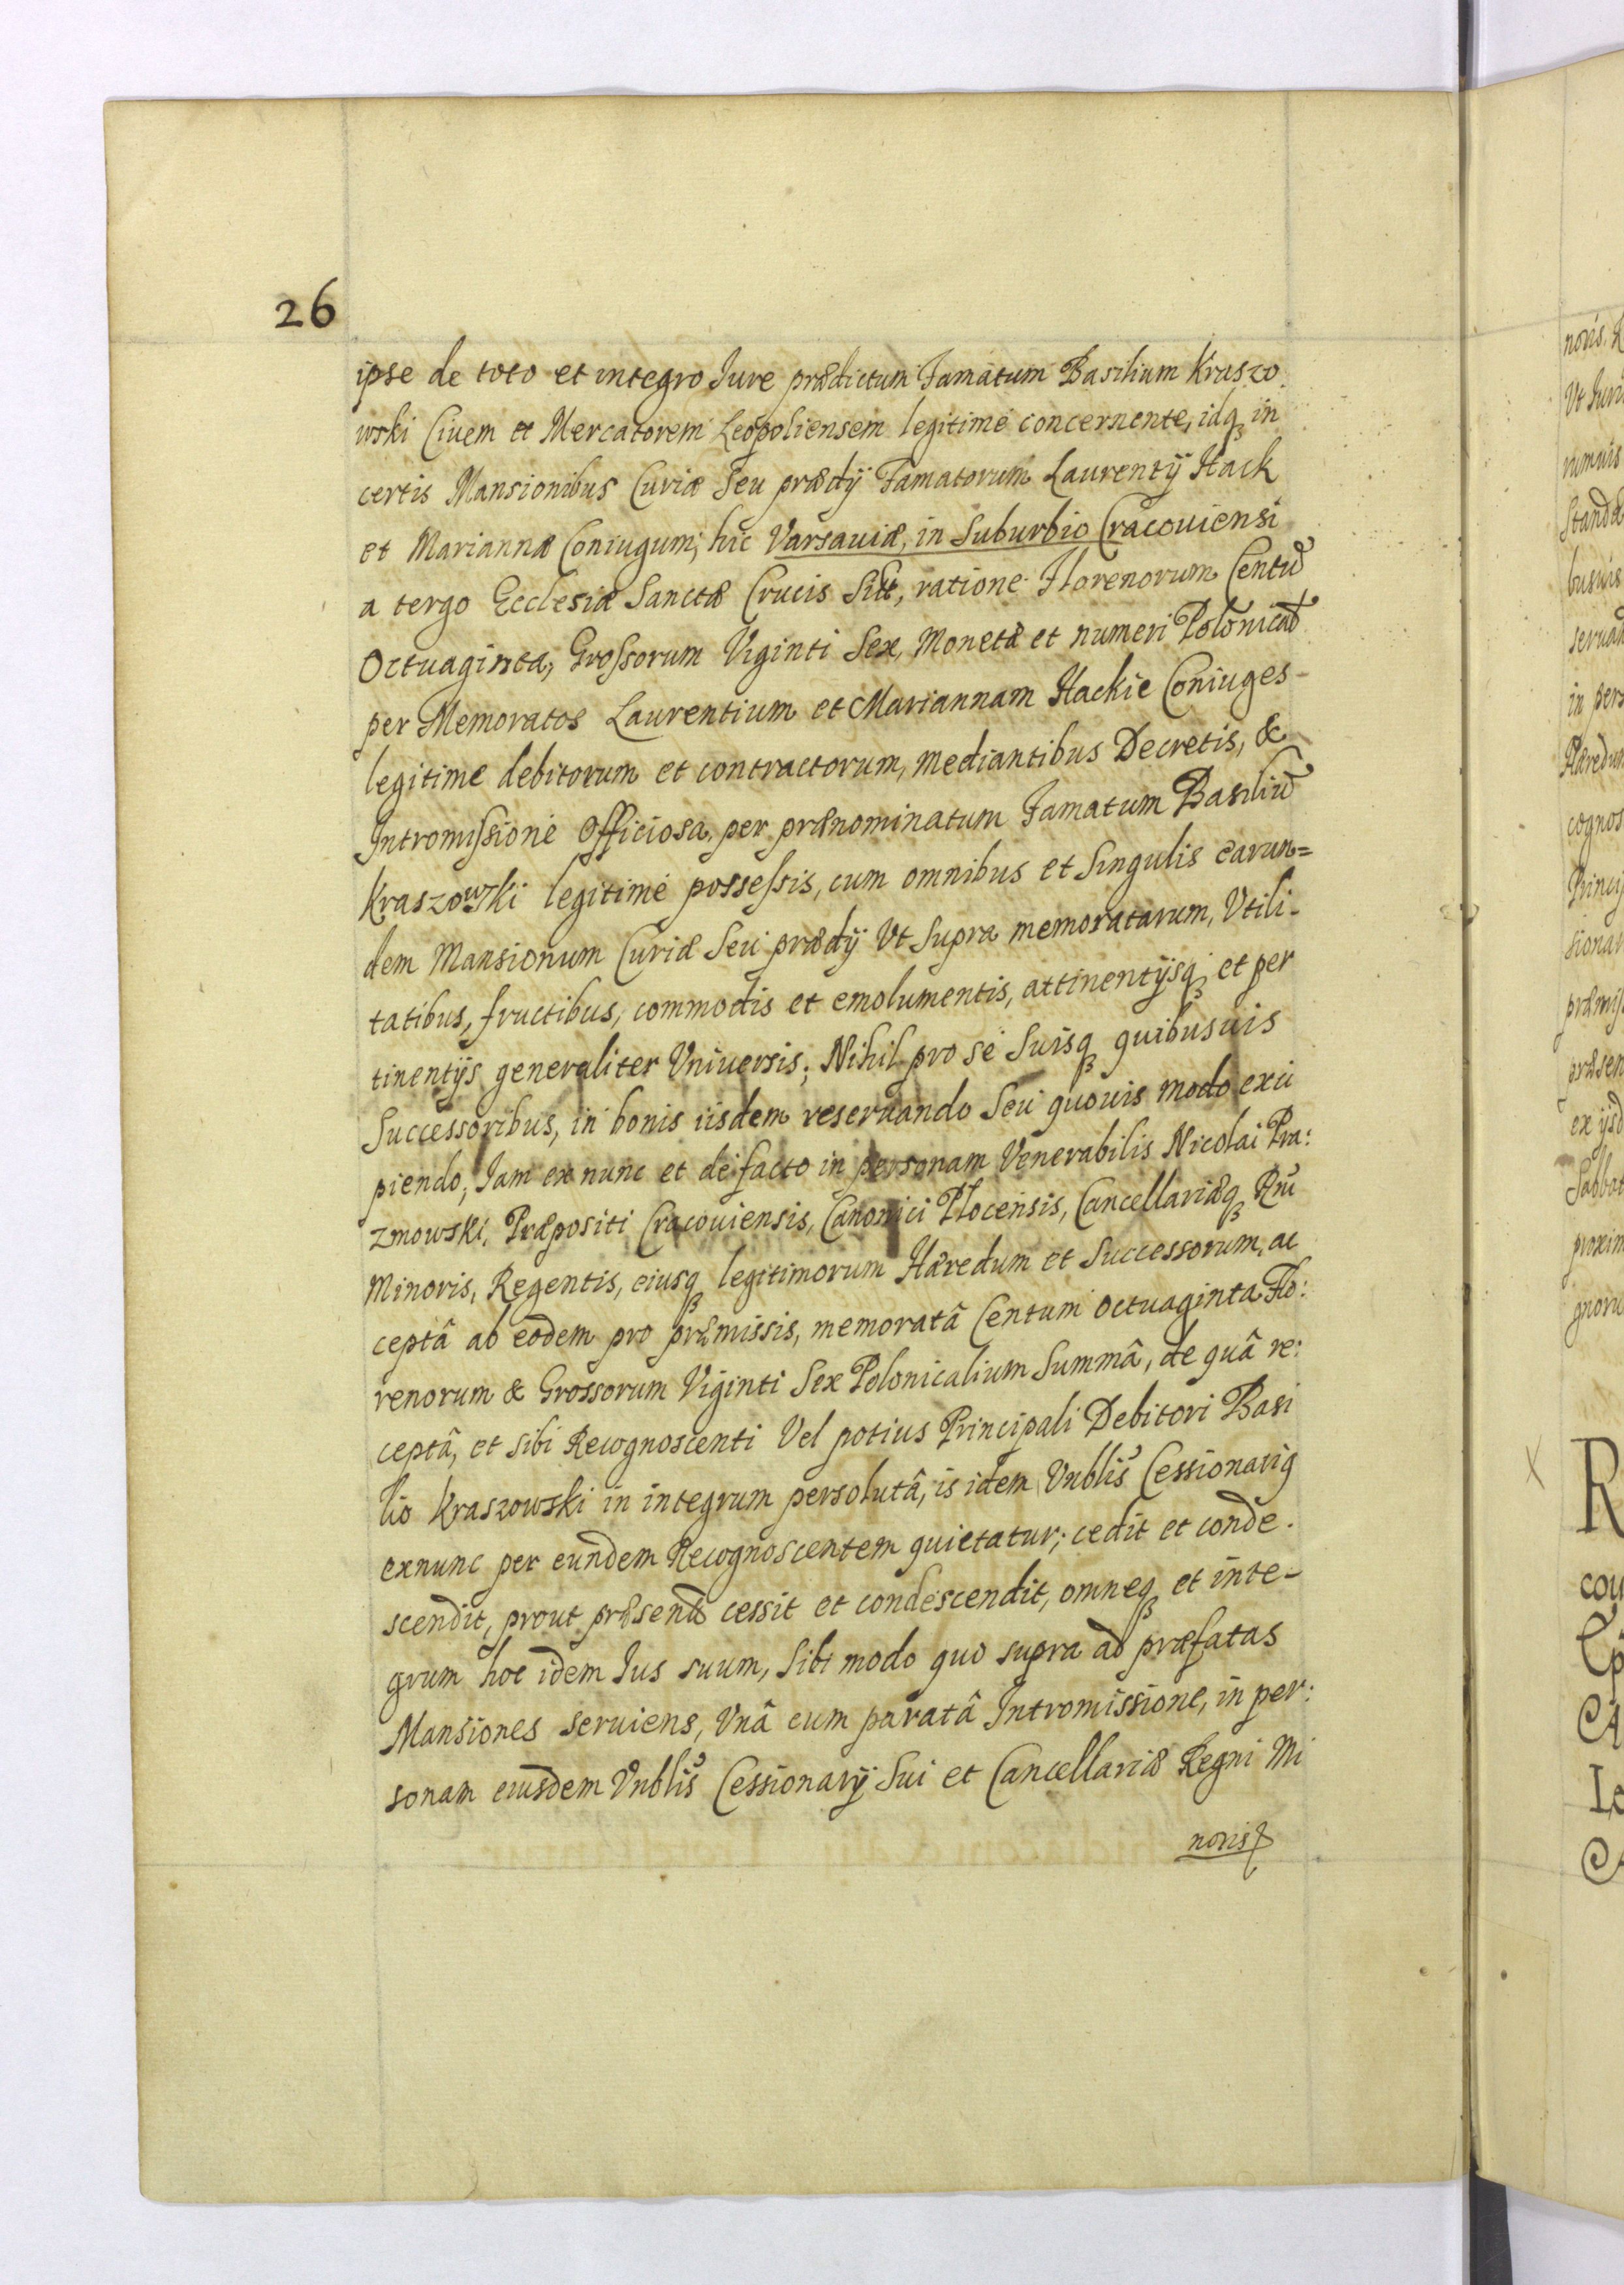 26
ipse de toto et integro Iure prædictum Famatum Basilium Kraszo
wski Civem et Mercatorem Leopoliensem legitimè concernente, idq; in
certis Mansionibus Curiæ Seu prædÿ Famatorum Laurentÿ Hack
et Mariannæ Coniugum; hic Varsauiæ, in Suburbio Cracouiensi
a tergo Ecclesiæ Sanctæ Crucis Sitæ, ratione Florenorum Centũ
Octuaginta, Grossorum Viginti Sex, Monetæ et numeri Polonicał
per Memoratos Laurentium et Mariannam Hackie Coniuges
legitime debitorum et contractorum, mediantibus Decretis, &
Intromissione Officiosa, per prænominatum Famatum Basiliũ
Kraszowski legitimè possessis, cum omnibus et Singulis earun=
dem Mansionum Curiæ Seu prædÿ Vt Supra memoratarum, Vtili-
tatibus, fructibus, commodis et emolumentis, attinentÿsq; et per
tinentÿs generaliter Vniuersis; Nihil pro se Suisq; quibusuis
Successoribus, in bonis iisdem reseruando Seu quouis modo exci
piendo; Iam ex nunc et de facto in personam Venerabilis Nicolai Pra:
zmowski, Præpositi Cracouiensis, Canonici Plocensis, Cancellariæq; Rni
Minoris, Regentis, eiusq; legitimorum Hæredum et Successorum, ac
ceptâ ab eodem pro præmissis, memoratâ Centum Octuaginta Flo:
renorum & Grossorum Viginti Sex Polonicalium Summâ, de quâ re:
ceptâ, et sibi Recognoscenti Vel potius Principali Debitori Basi
lio Kraszowski in integrum persolutâ, is idem Vnblis Cessionarig
exnunc per eundem Recognoscentem quietatur; cedit et conde.
scendit, prout præsentibus cessit et condescendit, omneq; et inte-
grum hoc idem Ius suum, Sibi modo quo supra ad præfatas
Mansiones seruiens, Vnâ cum paratâ Intromissione, in per:
sonam eiusdem Vnblis Cessionarÿ Sui et Cancellariæ Regni Mi
noris